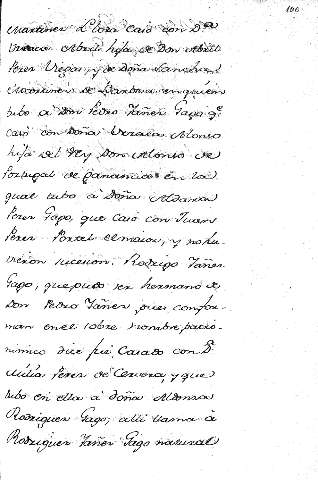 100
Martinez Llora Casó con D.ª
Urraca Abril hija de Don Abril
Perez Viegas, y de Doña Sancha
de Barbosa en quien
tubo â Don Pedro Yañez Gago q.e
casó con Doña Urraca Alonso
hija del Rey Don Alonso de
Portugal de ganancia en la
qual tubo â Doña Aldanza
Perez Gago, que Casó con Juan
Perez Portel el maior, y no hu-
vieron sucesion. Rodrigo Yañez
Gago, que pudo ser hermano de
Don Pedro Yañez, pues confor-
man en el sobre nombre, patro-
nimico dice fué Casado con D.ª
Milia Perez de Cervera, y que
tubo en ella â doña Aldonza
Rodriguez Gago; alli llama â
Rodriguez Yañez Gago natural